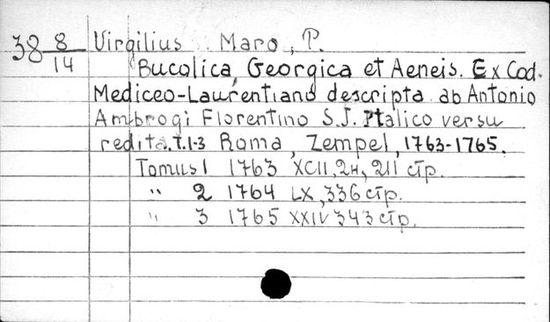 38 8/14 Virgilius Maro, P.
Bucolica, Georgica et Aeneis. Ex Cod.
Mediceo-Laurentiano descripta ab Antonio
Ambrogi Florentino S.J. Italico versu
reddita. T.1-3 Roma, Zempel, 1763-1765.
Tomus 1 1763 XCII, 2н, 211 стр.
" 2 1764 LX, 336 стр.
" 3 1765 XXIV 343 стр.